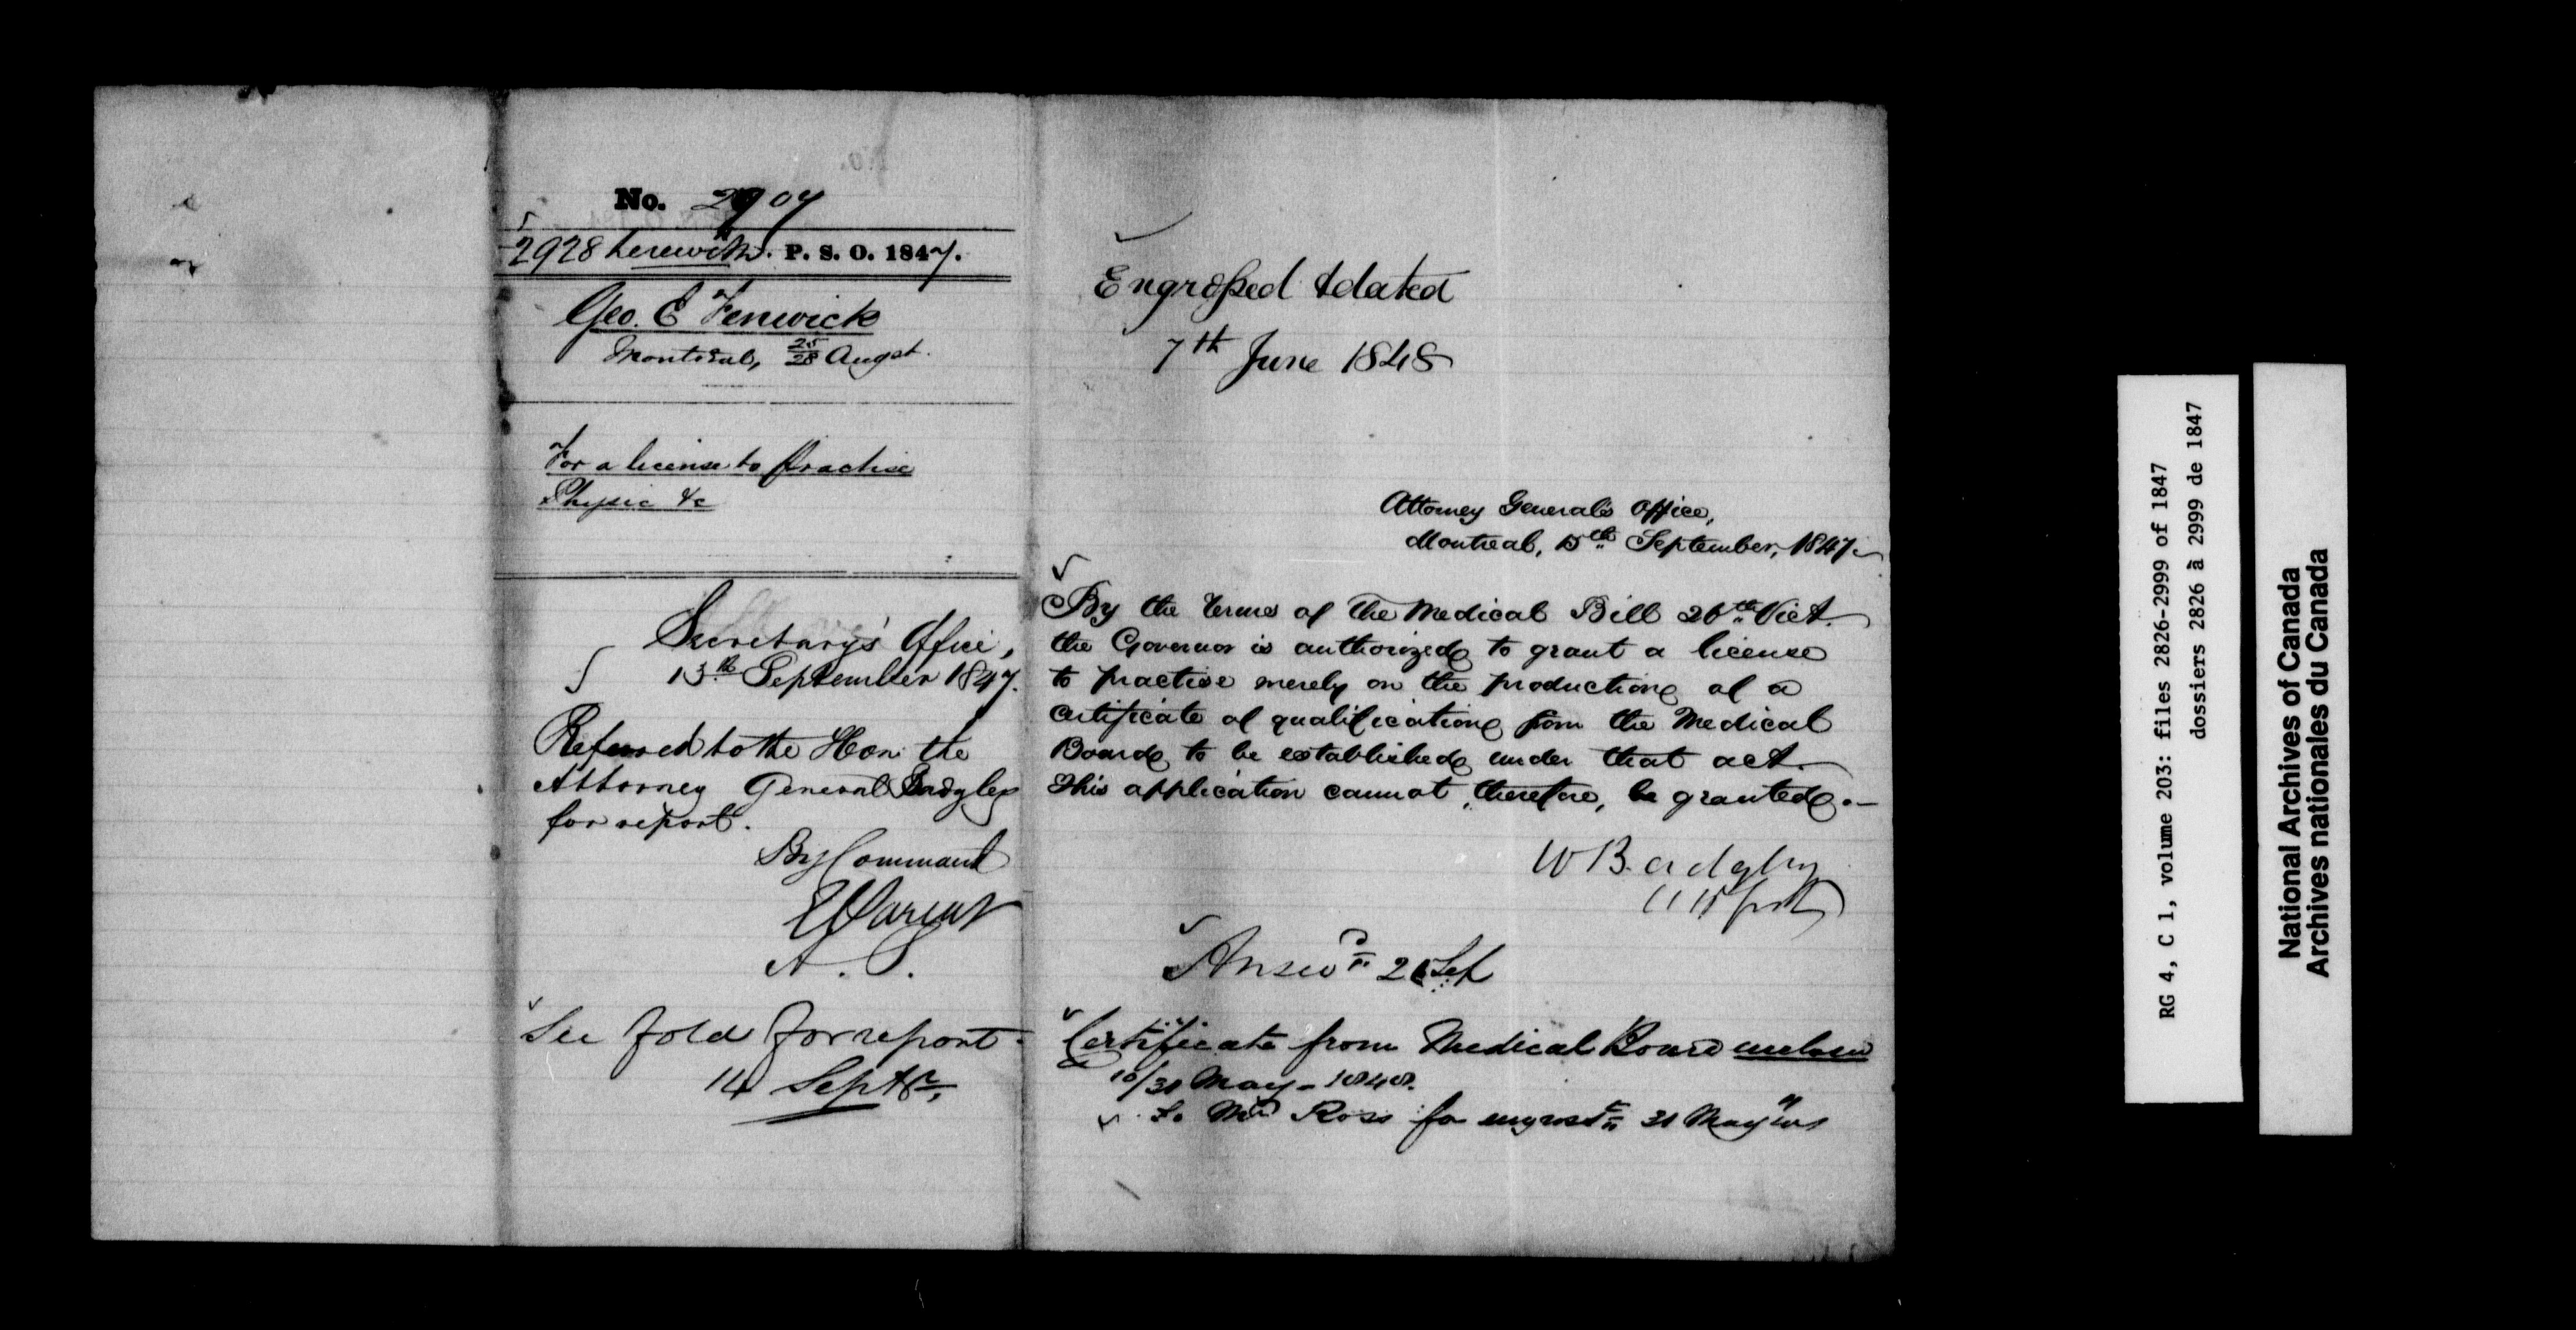 No. 2907
2928 herewith. P. S. O. 1847.
Geo. E Fenwick
Montreal, 25/28 Augst.
For a license to practise
Physic &c
Secretary's Office,
13th September 1847.
Referred to the Hon: the
Attorney General Badgley
for report.
By Command
E Parent
A. S.
See fold for report.
14 Septr.
Engrossed & dated
7th June 1848
Attorney General's Office,
Montreal, 15th September, 1847.
By the terms of the Medical Bill Vict.
the Governor is authorized to grant a license
to practise merely on the production of a
certificate of qualification from the Medical
Board to be established under that act.
This application cannot, therefore, be granted.
W Badgley
Answd 21 Sep
Certificate from Medical Board enclosed
10/31 May - 1848.
To Mr Ross for engrosst 31 May
RG 4, C 1, volume 203: files 2826-2999 of 1847
dossiers 2826 à 2999 de 1847
National Archives of Canada
Archives nationales du Canada